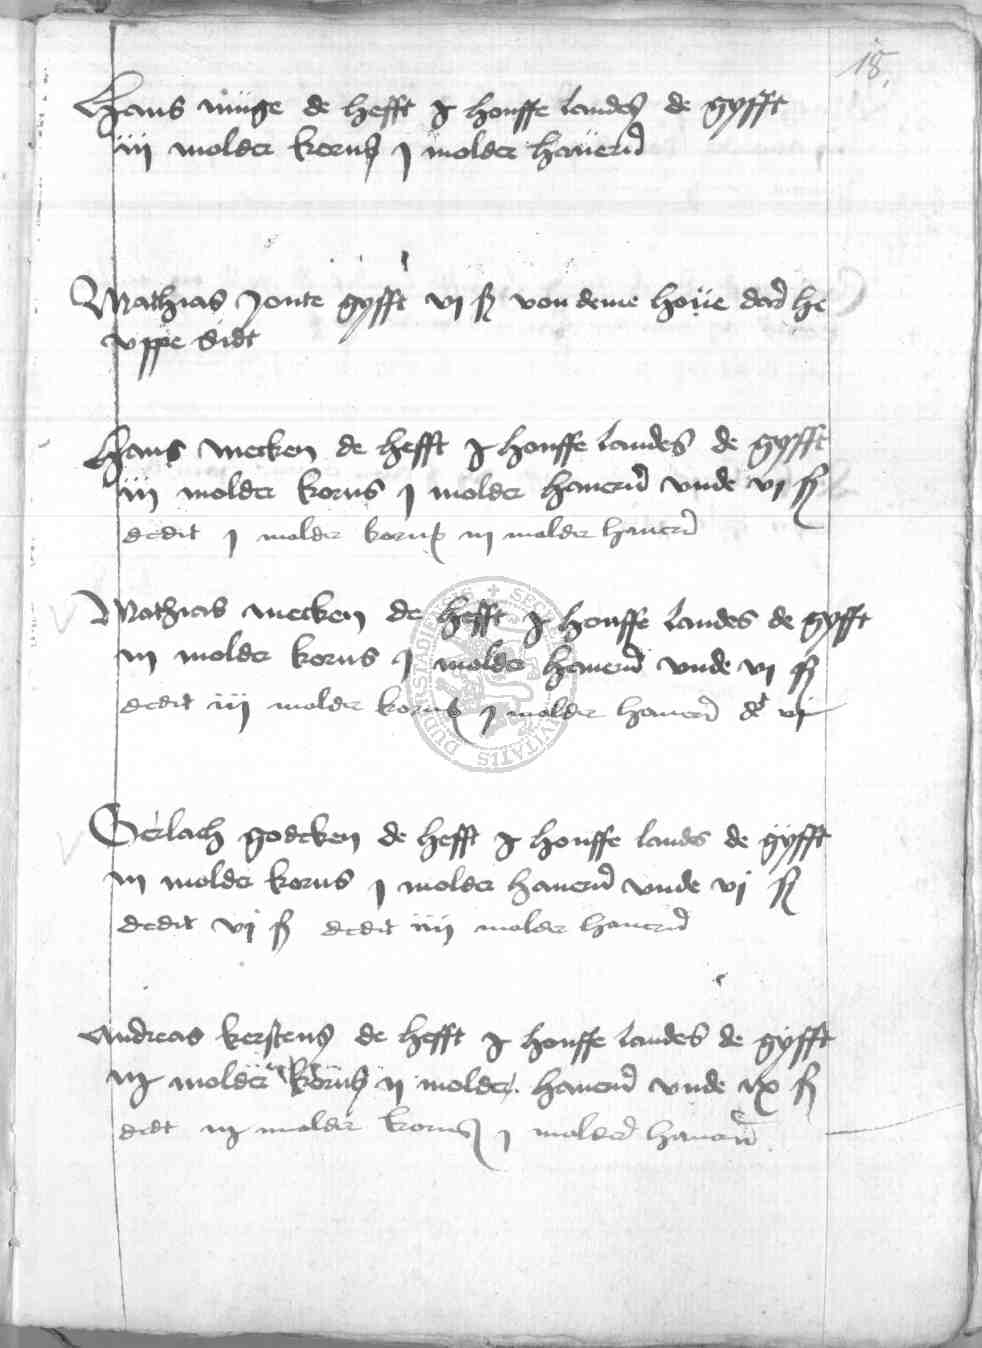 18.
Hans müge de hefft j houffe landes de gyfft
iij molder korns j molder hauern
Mathias Jonte gyfft vj ß von deme houe dar he
vppe sidt
Hans mecken de hefft j houffe landes de gyfft
iij molder korns j molder hauern vnde vj ß
dedit j molder korns iij molder hauern
Mathias mecken de hefft j houffe landes de gyfft
iij molder korns j molder hauern vnde vj ß
dedit iij molder korns j molder hauern vj
Gerlach godeken de hefft j houffe lands de gyfft
iij molder korns j molder hauern vnde vj ß
dedit vj ß dedit iiij molder hauern
Andreas kerstens de hefft j houffe landes de gyfft
molder korns ij molder hauern vnde ix ß
molder korns j molder hauern